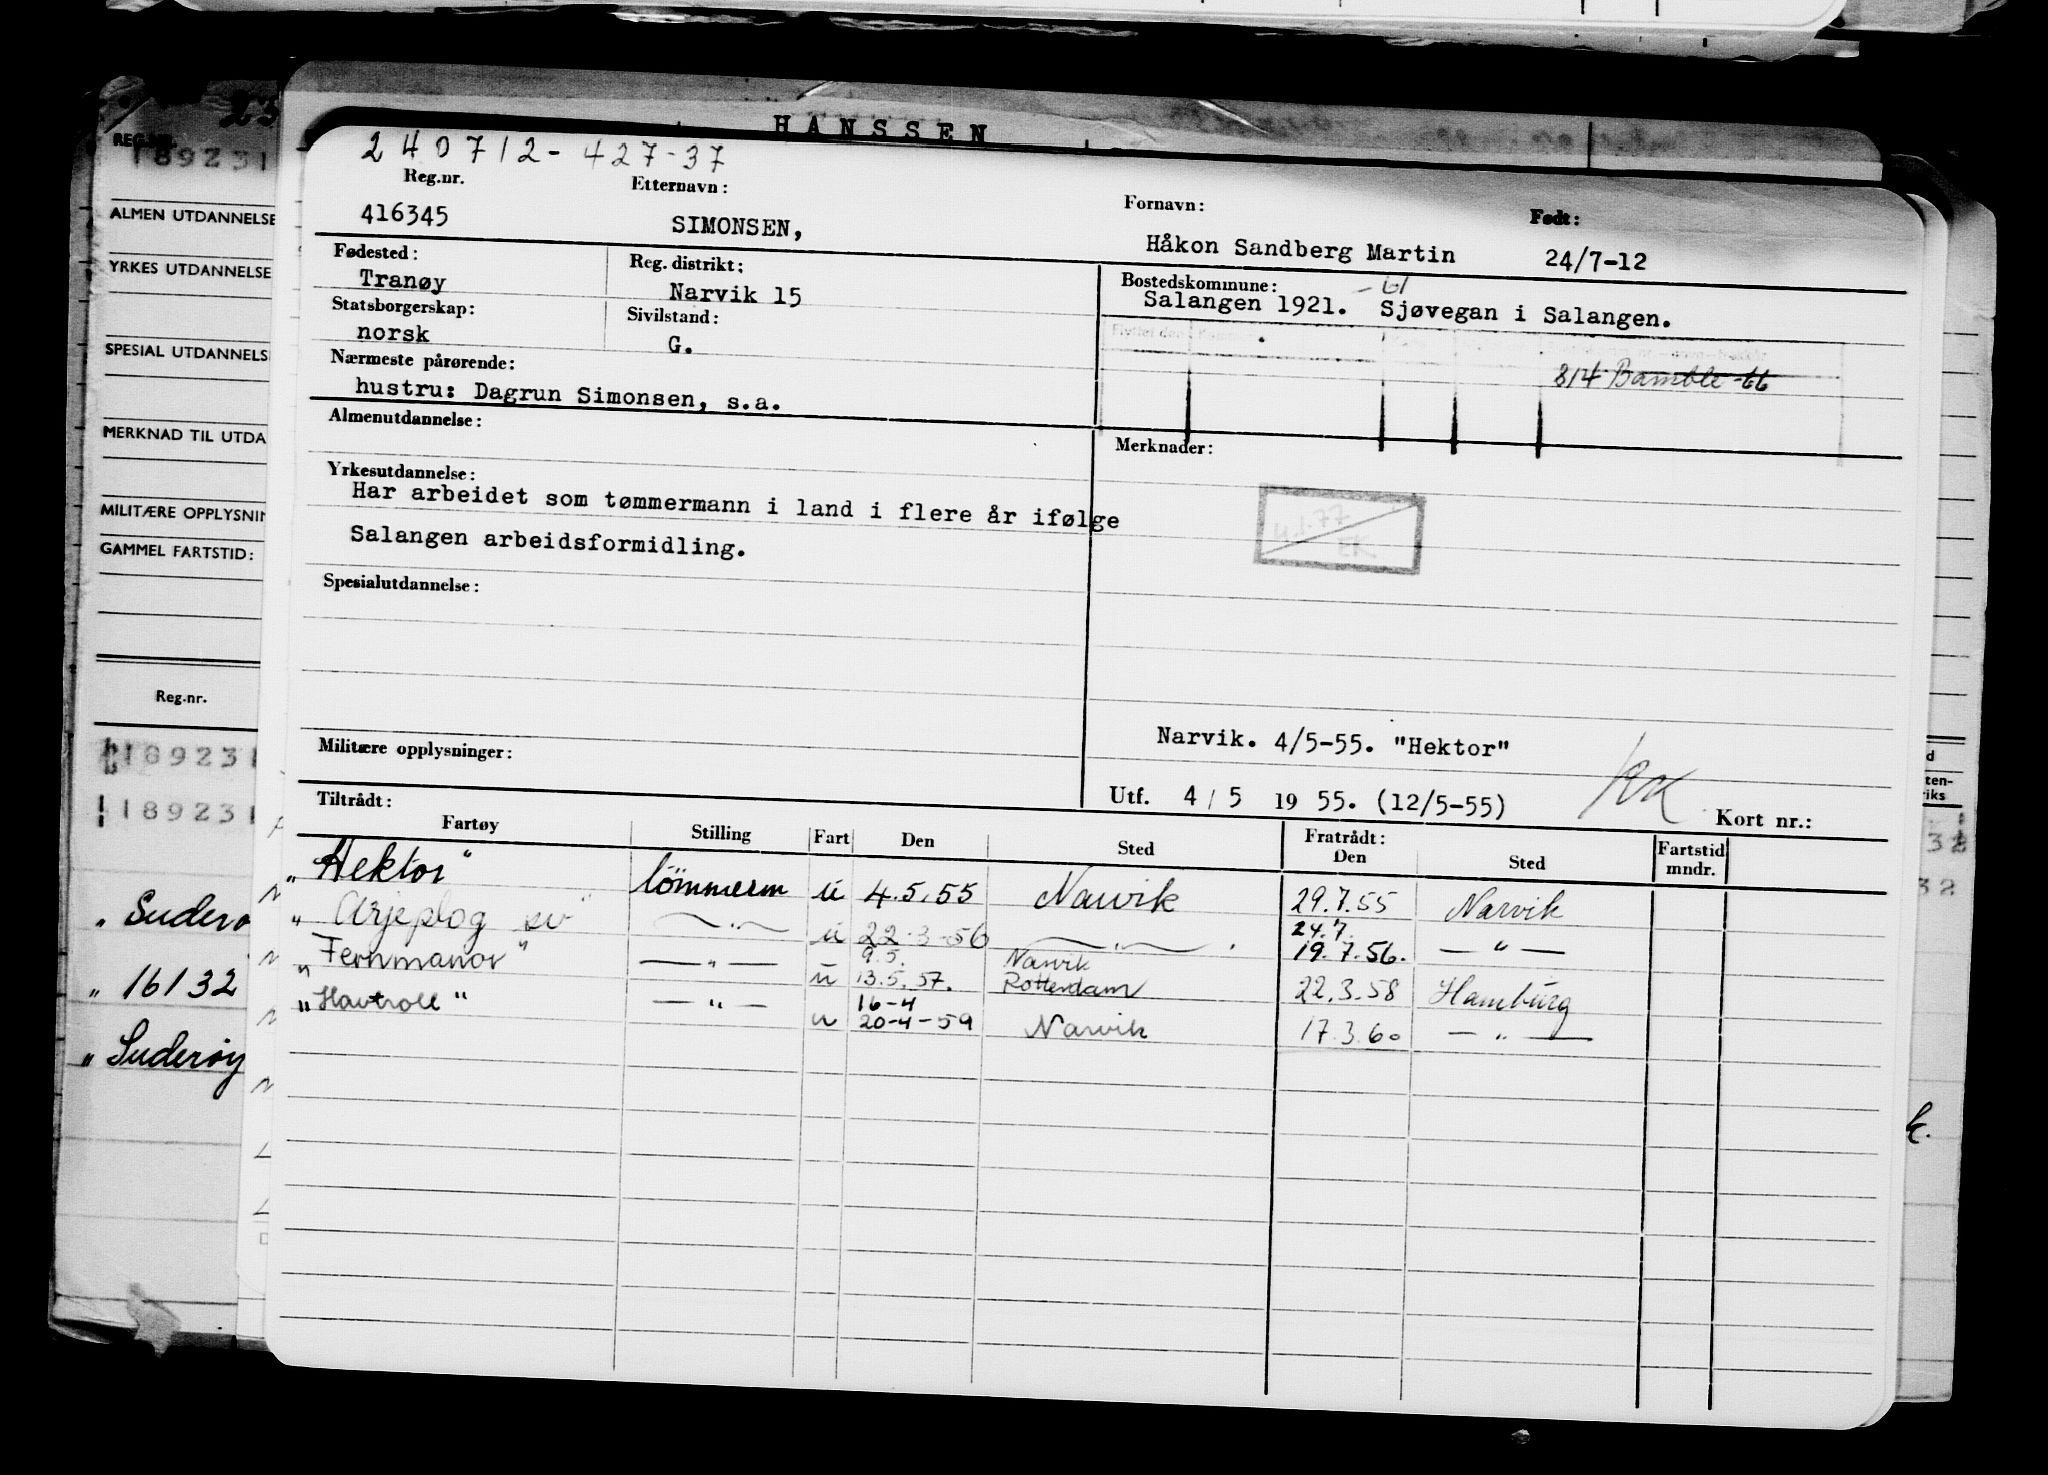 HANSSEN
240712-427-37
Reg.nr. Etternavn: Fornavn: Født:
416345 SIMONSEN, Håkon Sandberg Martin 24/7-12
Fødested: Reg. distrikt: Bostedskommune:
Tranøy Narvik 15 Salangen 1921. Sjøvegan i Salangen.
Statsborgerskap: Sivilstand:
norsk G.
Nærmeste pårørende: 814 Bamble -66
hustru: Dagrun Simonsen, s.a.
Almenutdannelse: Merknader:
Yrkesutdannelse:
Har arbeidet som tømmermann i land i flere år ifølge
Salangen arbeidsformidling.
4.1.77
EK
Spesialutdannelse:
Narvik. 4/5-55. "Hektor"
Militære opplysninger:
Utf. 4/5 1955. (12/5-55) Kort nr.:
Tiltrådt: Fratrådt:
Fartøy Stilling Fart Den Sted Den Sted Fartstid mndr.
"Hektor" tömmerm u 4.5.55 Narvik 29.7.55 Narvik
"Arjeplog sv" — " — u 22-3-56 — " — 24.7. 19.7.56. — " —
"Fernmanor" — " — u 9.5. 13.5.57. Narvik Rotterdam 22.3.58 Hamburg
"Havtroll" — " — u 16-4 20-4-59 Narvik 17.3.60 — " —
REG.NR.
189231
ALMEN UTDANNELSE
YRKES UTDANNELSE
SPESIAL UTDANNELS
MERKNAD TIL UTDA
MILITÆRE OPPLYSNIN
GAMMEL FARTSTID:
Reg.nr.
189231
189231
"Suderø
"16132
"Suderøy
d
ten-
riks
32
32
k.